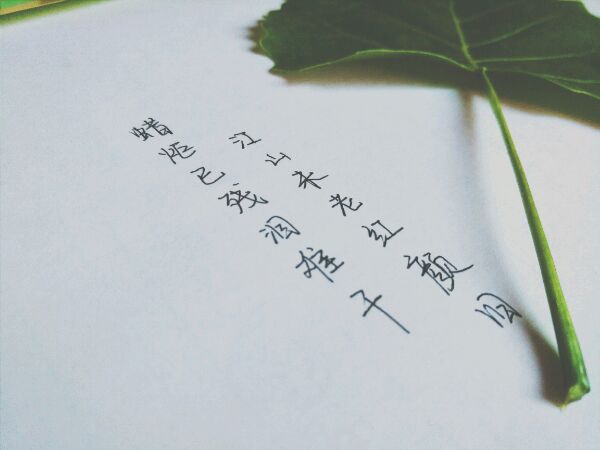 蜡炬已残泪难干
江山未老红颜旧